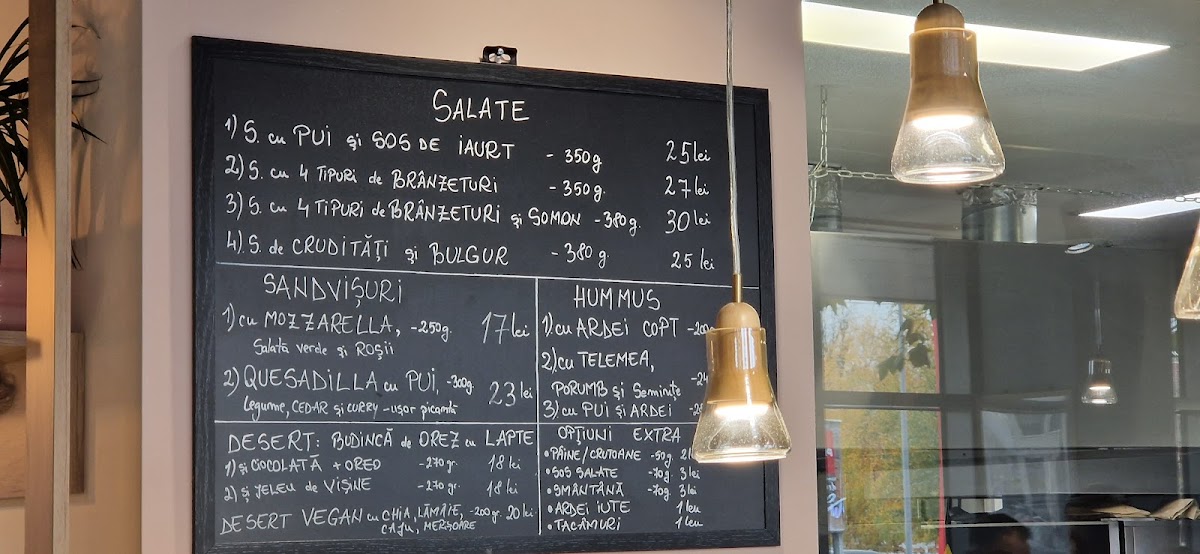 SALATE
1) S. cu PUI și SOS DE IAURT - 350g 25 lei
2) S. cu 4 TIPURI de BRÂNZETURI - 350g. 27 lei
3) S. cu 4 TIPURI de BRÂNZETURI și SOMON - 380g. 30 lei
4) S. de CRUDITĂȚI și BULGUR - 380 g. 25 lei
SANDVIȘURI
1) cu MOZZARELLA, - 250g. 17 lei
Salată verde și ROȘII
2) QUESADILLA cu PUI, - 300g. 23 lei
legume, CEDAR și CURRY - ușor picantă
HUMMUS
1) cu ARDEI COPT
2) cu TELEMEA,
PORUMB și Semințe
3) cu PUI și ARDEI
DESERT: BUDINCĂ de OREZ cu LAPTE
1) și CIOCOLATĂ + OREO - 270 gr. 18 lei
2) și JELEU de VIȘINE - 270 gr. 18 lei
DESERT VEGAN cu CHIA, LĂMÂIE, - 200g. 20 lei
CAJU, MERIȘOARE
OPȚIUNI EXTRA
• PÂINE/CRUTOANE - 50g. 2
• SOS SALATE - 70g. 3 lei
• SMÂNTÂNĂ - 70g. 3 lei
• ARDEI IUTE 1 leu
• TACÂMURI 1 leu